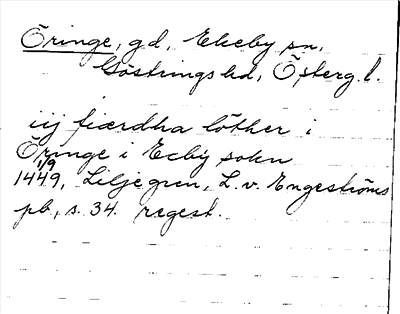 Öringe, gd, Ekeby sn,
Göstrings hd, Österg. l.
iij fiærdha löther i
Öringe i Ecby sokn
1449, 1/9 Liljegren, L. v. Engeströms
pb, s. 34. regest.